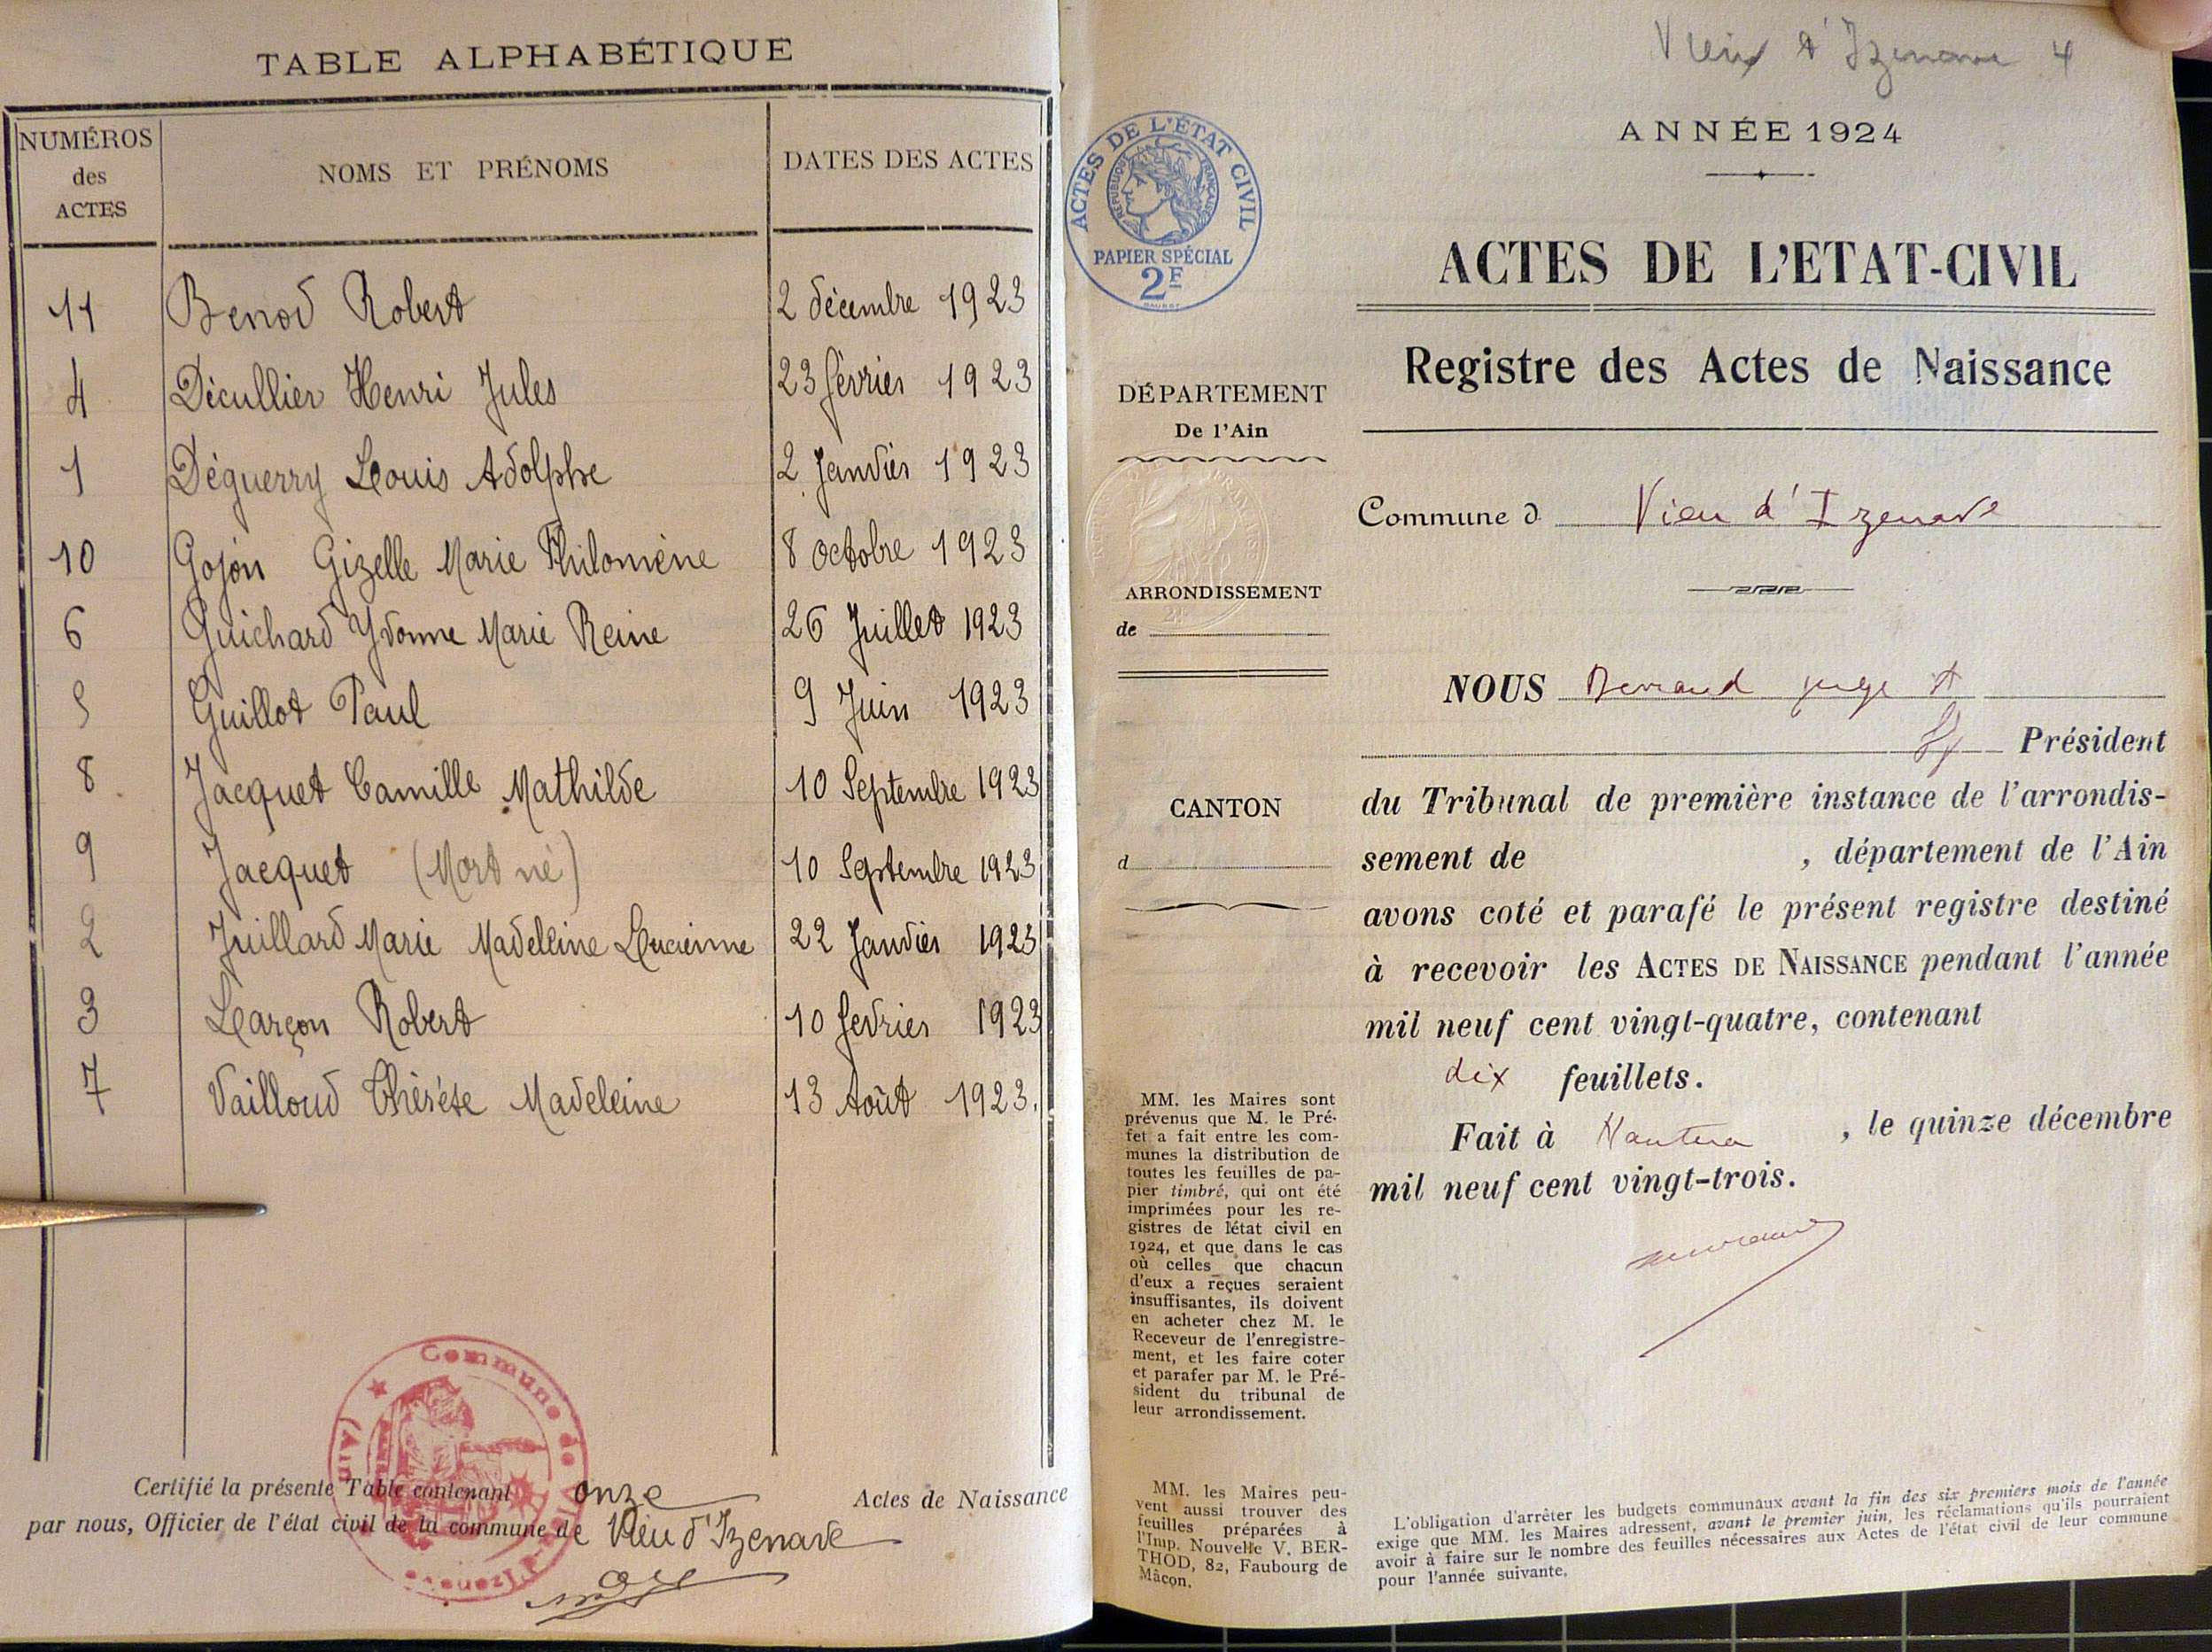 TABLE ALPHABÉTIQUE
NUMÉROS
des
ACTES
NOMS ET PRÉNOMS
DATES DES ACTES
11 Benod Robert 2 décembre 1923
4 Décullier Henri Jules 23 février 1923
1 Déguerry Louis Adolphe 2 Janvier 1923
10 Gojon Gizelle Marie Philomène 8 octobre 1923
6 Guichard Yvonne Marie Reine 26 Juillet 1923
5 Guillot Paul 9 Juin 1923
8 Jacquet Camille Mathilde 10 Septembre 1923
9 Jacquet (Mort né) 10 Septembre 1923
2 Juillard Marie Madeleine Lucienne 22 Janvier 1923
3 Larçon Robert 10 fevrier 1923
7 Vailloud Thérèse Madeleine 13 Août 1923.
Commune de Vieu-d'Izenave (Ain)
Certifié la présente Table contenant onze Actes de Naissance
par nous, Officier de l'état civil de la commune de Vieu d'Izenave
Vieu d'Izenave 4
ANNÉE 1924
ACTES DE L'ÉTAT CIVIL
RÉPUBLIQUE FRANÇAISE
PAPIER SPÉCIAL
2F
ACTES DE L'ETAT-CIVIL
Registre des Actes de Naissance
DÉPARTEMENT
De l'Ain
Commune d Vieu d'Izenave
ARRONDISSEMENT
de
NOUS juge
Président
CANTON
d
du Tribunal de première instance de l'arrondis-
sement de , département de l'Ain
avons coté et parafé le présent registre destiné
à recevoir les ACTES DE NAISSANCE pendant l'année
mil neuf cent vingt-quatre, contenant
dix feuillets.
Fait à Nantua , le quinze décembre
mil neuf cent vingt-trois.
MM. les Maires sont
prévenus que M. le Pré-
fet a fait entre les com-
munes la distribution de
toutes les feuilles de pa-
pier timbré, qui ont été
imprimées pour les re-
gistres de l'état civil en
1924, et que dans le cas
où celles que chacun
d'eux a reçues seraient
insuffisantes, ils doivent
en acheter chez M. le
Receveur de l'enregistre-
ment, et les faire coter
et parafer par M. le Pré-
sident du tribunal de
leur arrondissement.
MM. les Maires peu-
vent aussi trouver des
feuilles préparées à
l'Imp. Nouvelle V. BER-
THOD, 82, Faubourg de
Mâcon.
L'obligation d'arrêter les budgets communaux avant la fin des six premiers mois de l'année
exige que MM. les Maires adressent, avant le premier juin, les réclamations qu'ils pourraient
avoir à faire sur le nombre des feuilles nécessaires aux Actes de l'état civil de leur commune
pour l'année suivante.